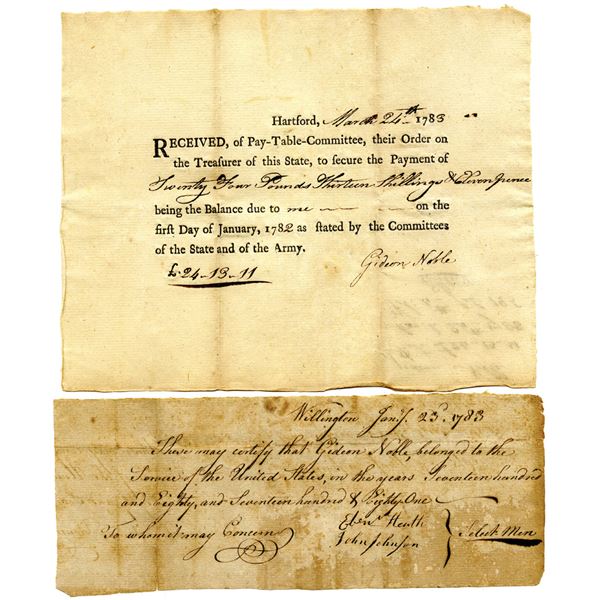 Hartford, March 24th 1783
RECEIVED, of Pay-Table-Committee, their Order on
the Treasurer of this State, to secure the Payment of
Twenty Four Pounds Thirteen Shillings & Eleven Pence
being the Balance due to me on the
first Day of January, 1782 as stated by the Committees
of the State and of the Army.
£24-13-11
Gideon Noble
Willington Jany. 23d. 1783
These may certify that Gideon Noble, belonged to the
Service of the United States, in the years Seventeen hundred
and Eighty, and Seventeen hundred & Eighty One
To whom it may Concern
Ebenr. Heath
John Johnson
Select Men